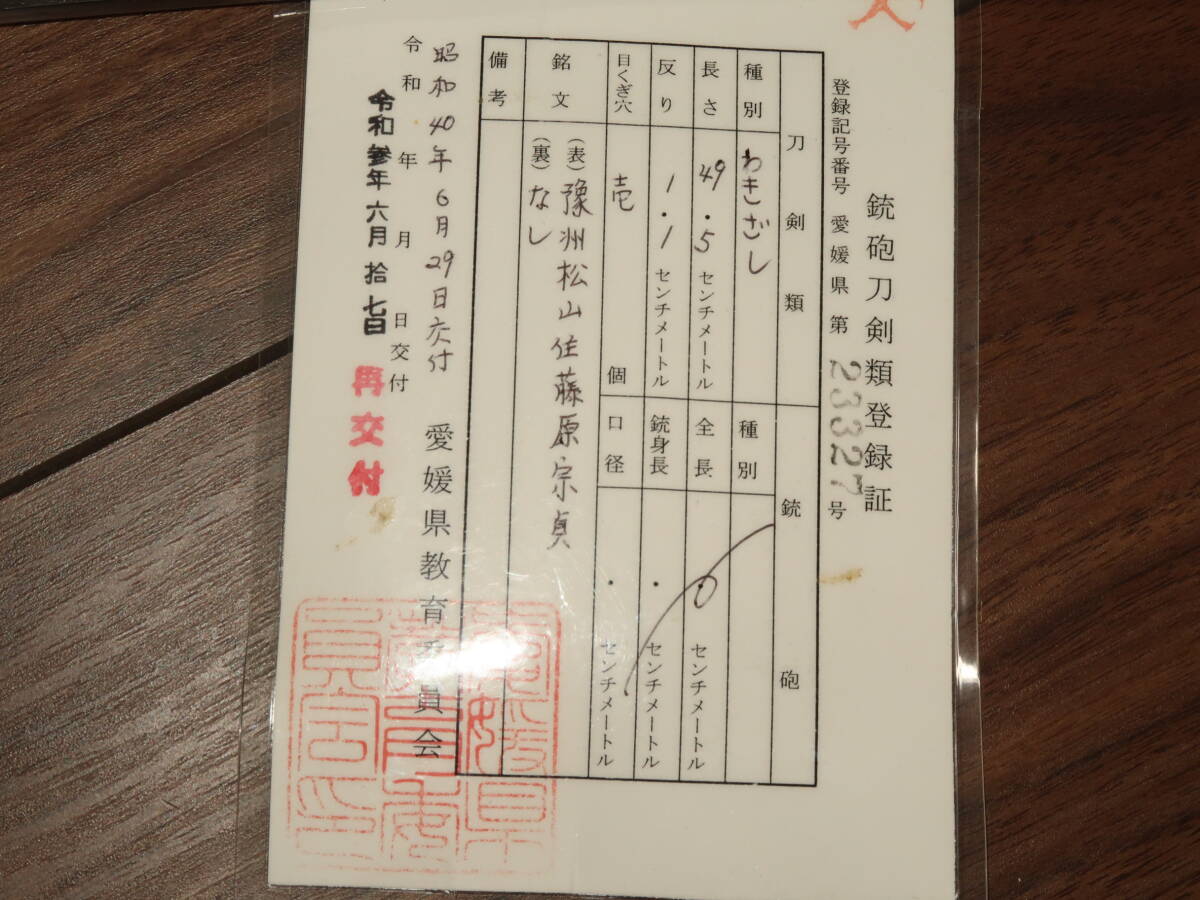 銃砲刀剣類登録証
登録記号番号 愛媛県 第 23327 号
刀剣類
銃砲
種別 わきざし
種別
長さ 49.5 センチメートル
全長 . センチメートル
反り 1.1 センチメートル
銃身長 . センチメートル
目くぎ穴 壱 個
口径 . センチメートル
銘文 (表) 豫洲松山住藤原宗貞
(裏) なし
備考
昭和40年6月29日交付
令和 年 月 日交付
愛媛県教育委員会
令和参年六月拾七日 再交付